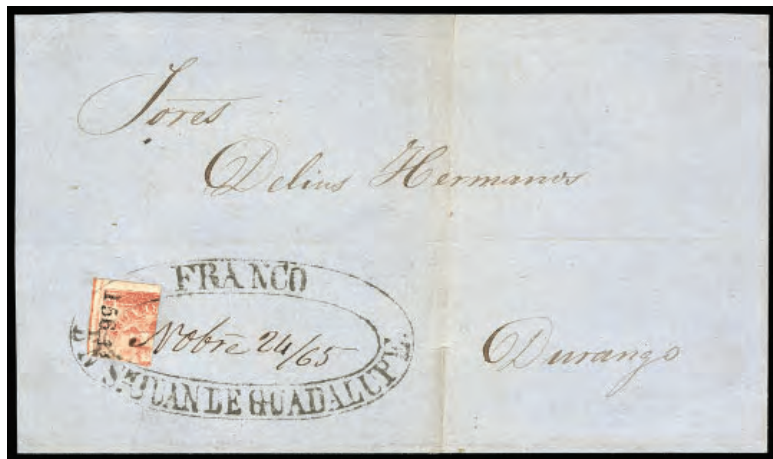 Sores
Delius Hermanos
FRANCO
Nobre 24/65
S. JUAN DE GUADALUPE.
Durango